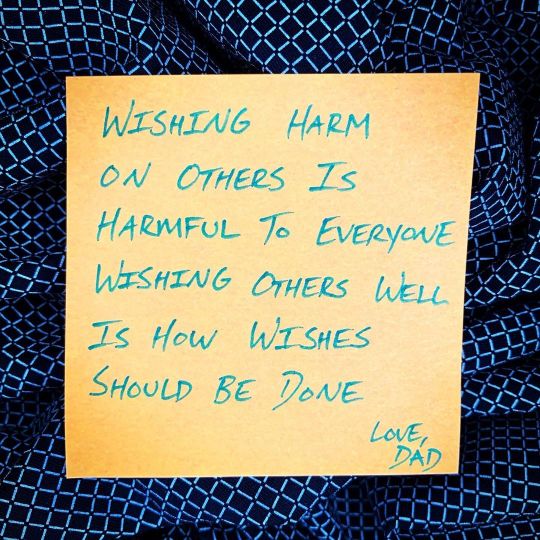 WISHING HARM
ON OTHERS IS
HARMFUL TO EVERYONE
WISHING OTHERS WELL
IS HOW WISHES
SHOULD BE DONE
LOVE,
DAD